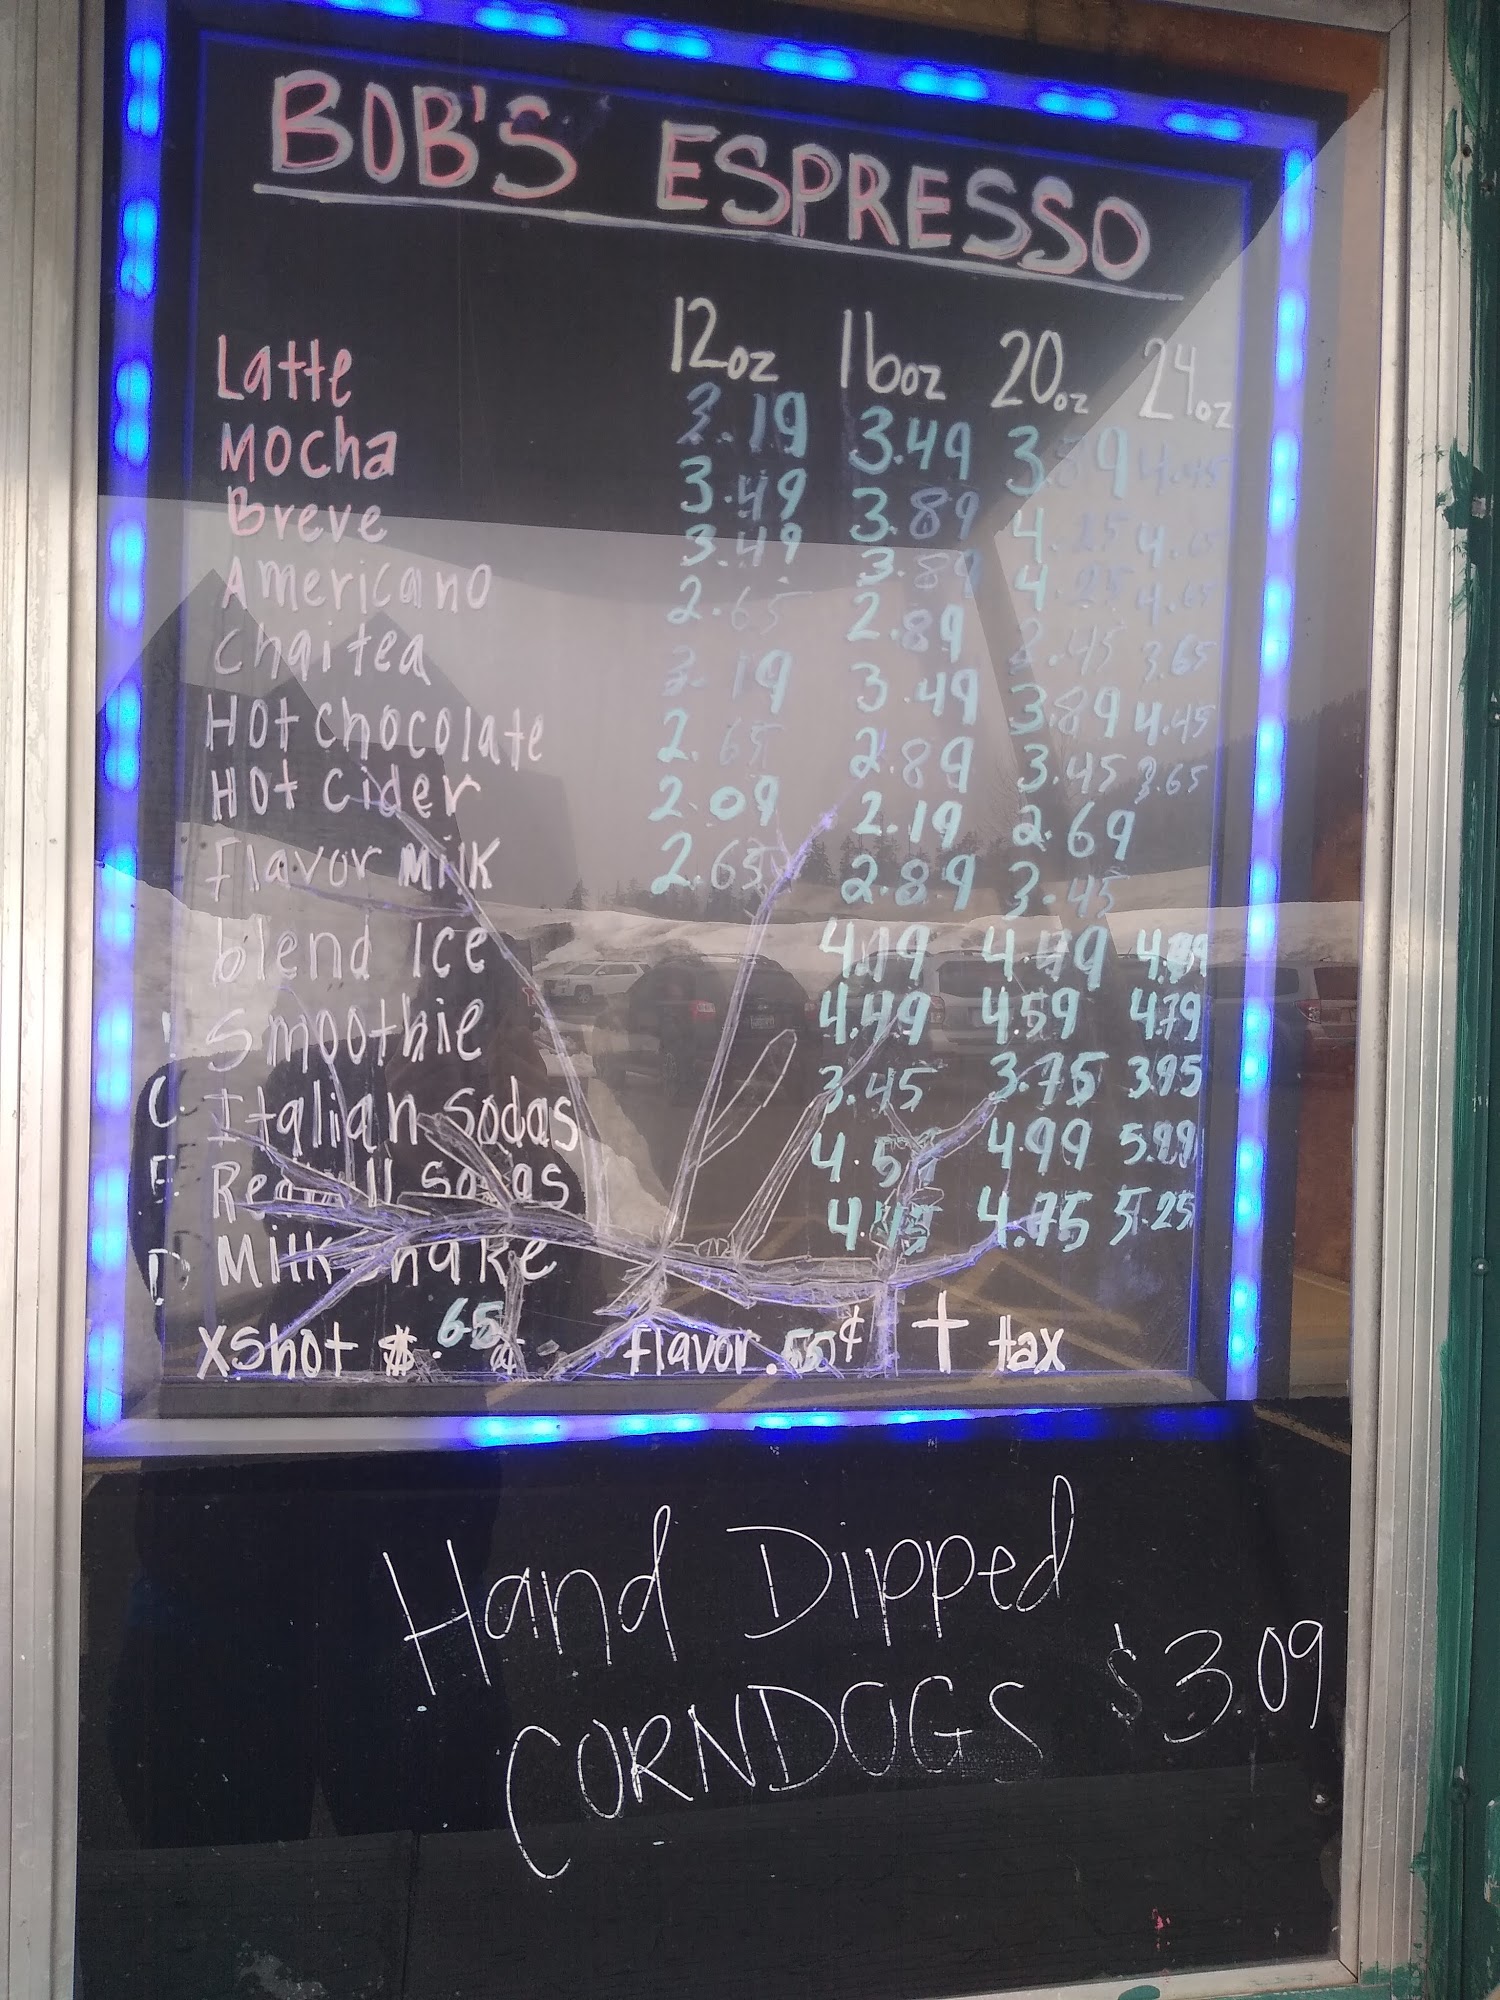 BOB'S ESPRESSO
12oz 16oz 20oz 24oz
Latte 3.19 3.49 3.89 4.45
Mocha 3.49 3.89 4.25 4.65
Breve 3.49 3.89 4.25 4.65
Americano 2.65 2.89 3.45 3.65
Chai tea 3.19 3.49 3.89 4.45
Hot Chocolate 2.65 2.89 3.45 3.65
Hot Cider 2.09 2.19 2.69
Flavor Milk 2.65 2.89 3.45
blend Ice 4.19 4.49
Smoothie 4.49 4.59 4.79
Italian Sodas 3.45 3.75 3.95
Red Bull Sodas 4.99
Milk Shake 4.75 5.25
ICED
XShot $.65 flavor .55¢ + tax
Hand Dipped
CORNDOGS $3.09